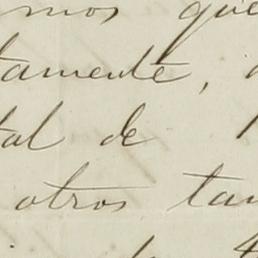 mos que
tamente,
tal de
otros tan